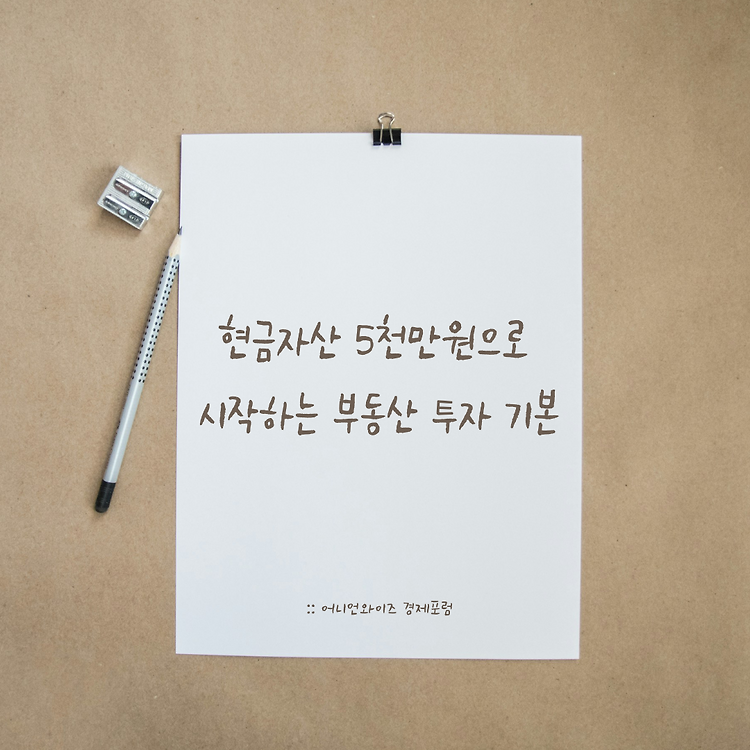 현금자산 5천만원으로
시작하는 부동산 투자 기본
:: 어니언와이즈 경제포럼